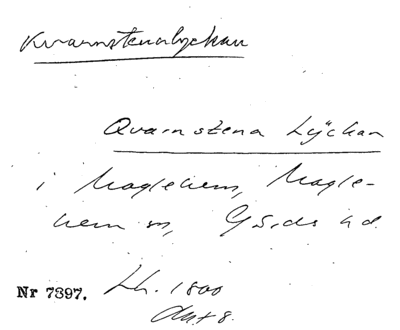 Kvarnstenalyckan
Qvarnstena Lÿckan
i Maglehem, Magle-
hem sn, Gärds hd.
Nr 7397. Lh. 1800
Akt 8.